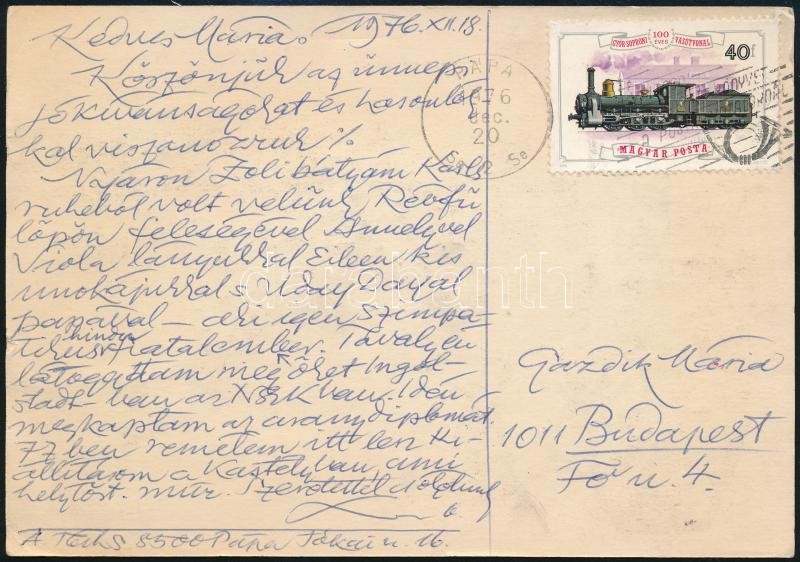 1976.XII.18.
Kedves Mária,
Köszönjük az ünnepi
jókívánságokat és hasonlók-
kal viszonozzuk %.
Nyáron Zoli bátyám Karls-
ruheből volt velünk Révfü-
löpön feleségével Annelyvel
Viola lányukkal Eileen kis
unokájukkal s
papával – aki igen szimpa-
tikus hindu fiatalember. Tavaly én
látogattam meg őket Ingol-
stadt-ban az NSZK ban. Idén
megkaptam az aranydiplomát.
77 ben remélem itt lesz ki-
állításom a Kastélyban, ami
helytört. múz. Szeretettel
A Tóth S 8500 Pápa Jókai u. 16.
GYŐR-SOPRONI 100 ÉVES VASÚTVONAL
40f
MAGYAR POSTA
PÁPA
1976
dec.
20
Gazdik Mária
1011 Budapest
Fő u. 4.
darabanth